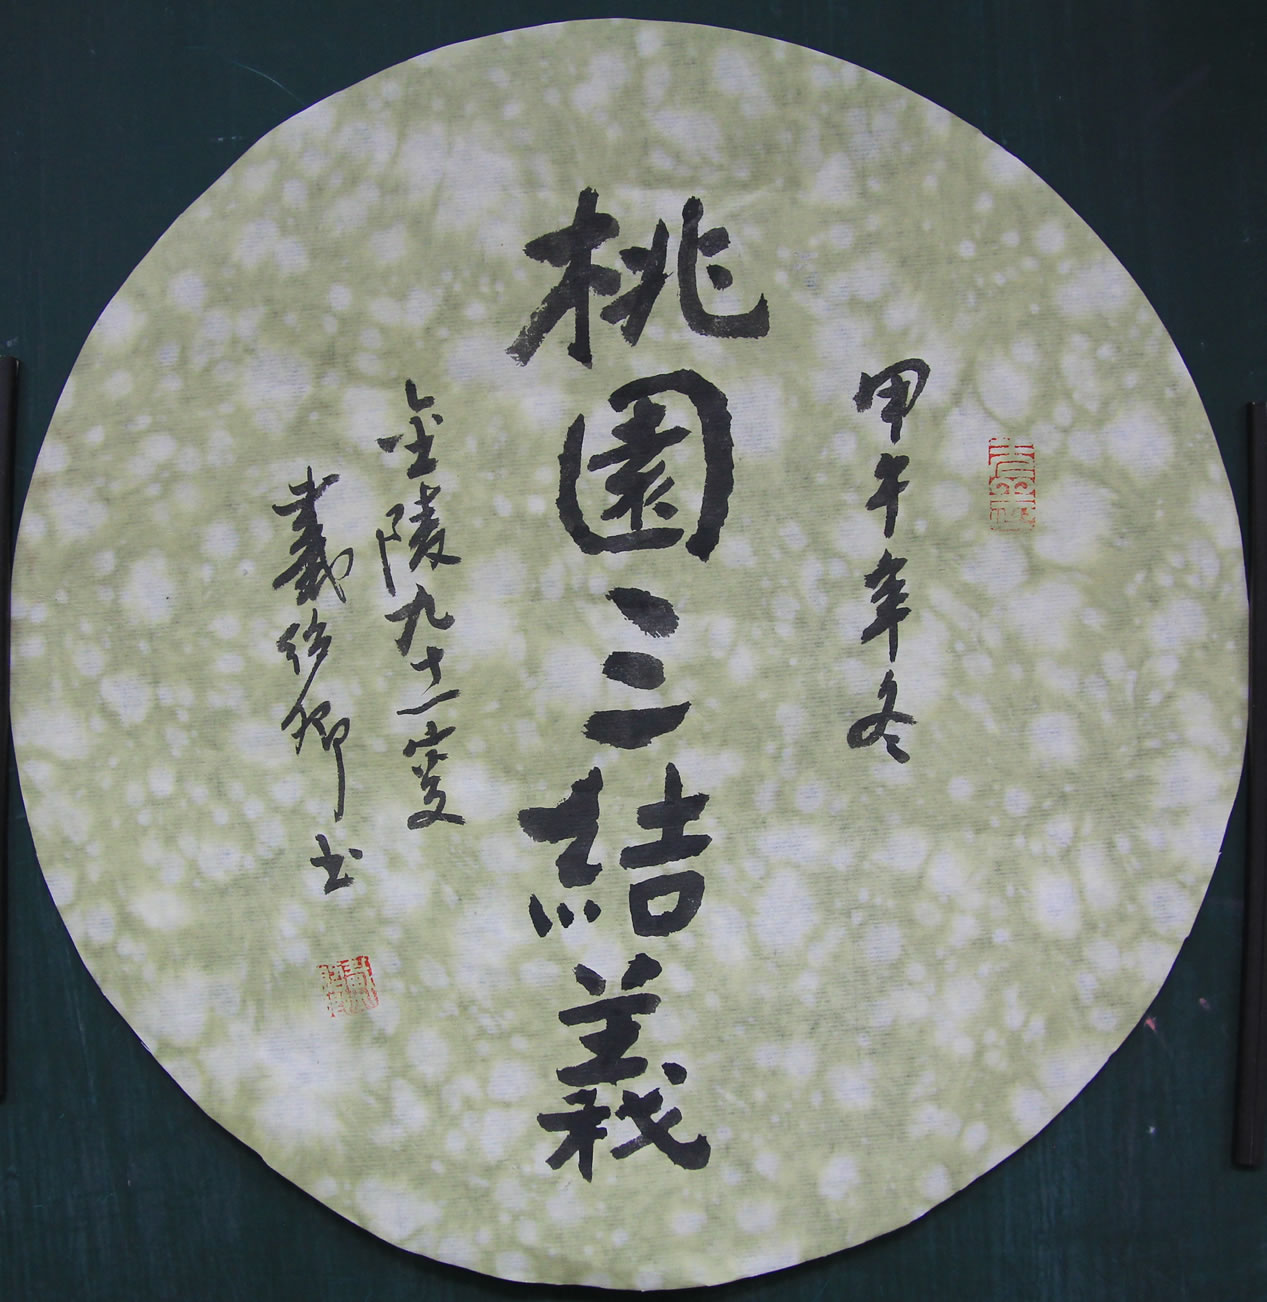 甲午年冬
桃園三結義
金陵九十一叟
戴卿书